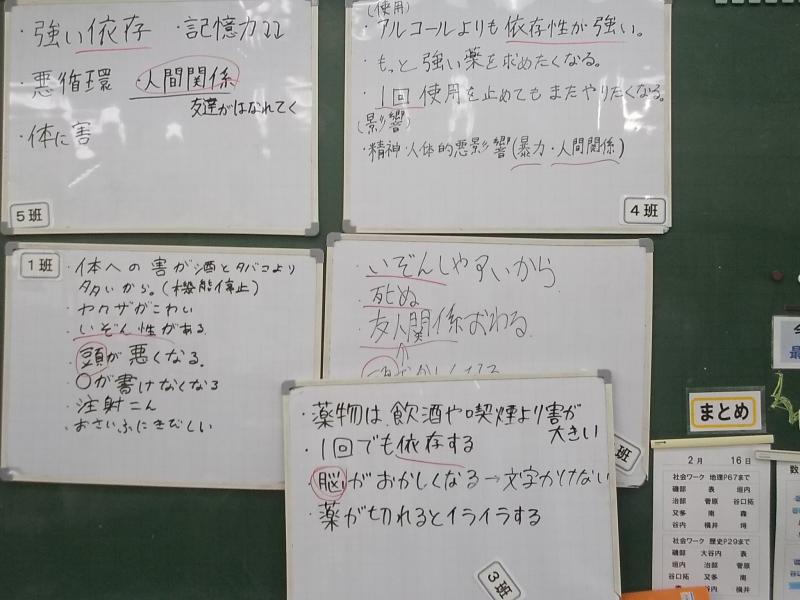 ・強い依存 ・記憶力↓↓
・悪循環 ・人間関係
友達がはなれてく
・体に害
5班
(使用)
・アルコールよりも依存性が強い。
・もっと強い薬を求めたくなる。
・1回使用を止めてもまたやりたくなる。
(影響)
・精神・人体的悪影響(暴力・人間関係)
4班
1班
・体への害が酒とタバコより
多いから。(機能停止)
・ヤクザがこわい
・いぞん性がある
・頭が悪くなる。
・〇が書けなくなる
・注射こん
・おさいふにきびしい
・いぞんしやすいから
・死ぬ
・友人関係がおわる
班
・薬物は、飲酒や喫煙より害が
大きい
・1回でも依存する
・脳がおかしくなる→文字かけない
・薬が切れるとイライラする
3班
まとめ
2月 16日
社会ワーク 地理P67まで
磯部 表 垣内
治部 菅原 谷口拓
又多 南 森
谷内 横井 埒
社会ワーク 歴史P29まで
磯部 大谷内 表
垣内 治部 菅原
谷口拓 又多 南
谷内 横井
今
最
数